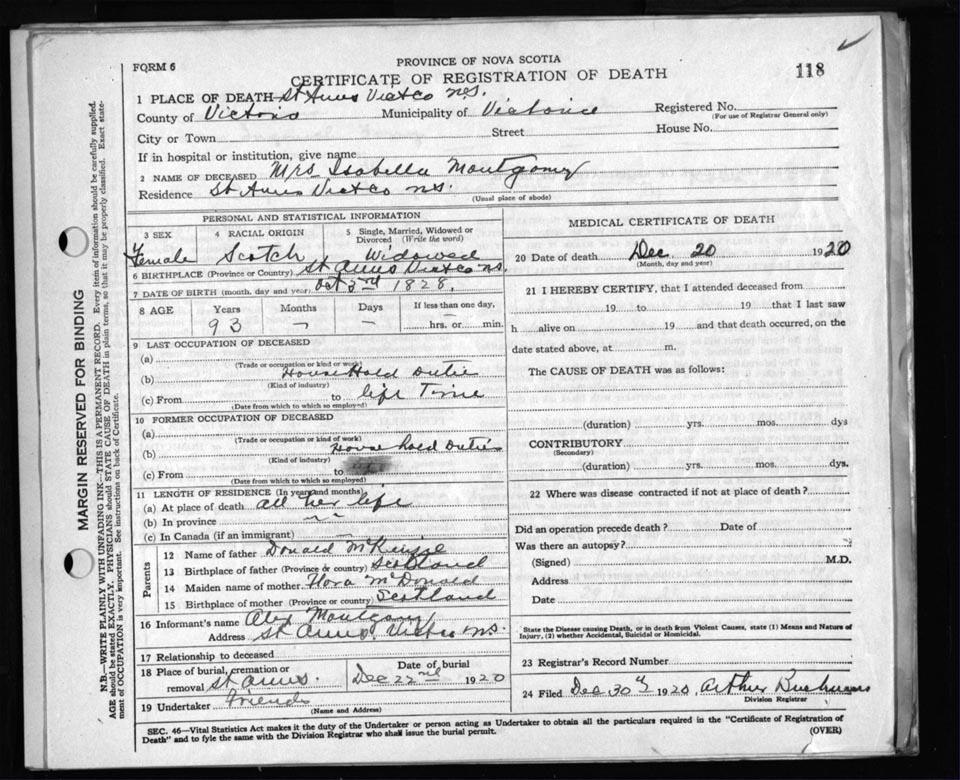 FORM 6
PROVINCE OF NOVA SCOTIA
CERTIFICATE OF REGISTRATION OF DEATH
118
1 PLACE OF DEATH St Anns Vict co N.S.
County of Victoria Municipality of Victoria Registered No.
(For use of Registrar General only)
City or Town Street House No.
If in hospital or institution, give name
2 NAME OF DECEASED Mrs Isabella Montgomy
Residence St Anns Vict co N.S.
(Usual place of abode)
PERSONAL AND STATISTICAL INFORMATION
3 SEX 4 RACIAL ORIGIN 5 Single, Married, Widowed or Divorced (Write the word)
Female Scotch Widowed
6 BIRTHPLACE (Province or Country) St Anns Vict co N.S.
7 DATE OF BIRTH (month, day and year) Oct 3rd 1828.
8 AGE Years Months Days If less than one day,
93 – – hrs. or min.
9 LAST OCCUPATION OF DECEASED
(a)
(Trade or occupation or kind of work)
(b) House Hold Dutie
(Kind of industry)
(c) From to life Time
(Date from which to which so employed)
10 FORMER OCCUPATION OF DECEASED
(a)
(Trade or occupation or kind of work)
(b) House hold Dutie
(Kind of industry)
(c) From to
(Date from which to which so employed)
11 LENGTH OF RESIDENCE (In years and months)
(a) At place of death all her life
(b) In province
(c) In Canada (if an immigrant)
Parents
12 Name of father Donald McKinsie
13 Birthplace of father (Province or country) Scotland
14 Maiden name of mother Flora McDonald
15 Birthplace of mother (Province or country) Scotland
16 Informant's name Alex Montgomy
Address St Anns, Vict co N.S.
17 Relationship to deceased
18 Place of burial, cremation or removal St Anns. Date of burial Dec 22nd 1920
19 Undertaker Friends
(Name and Address)
MEDICAL CERTIFICATE OF DEATH
20 Date of death Dec. 20 1920
(Month, day and year)
21 I HEREBY CERTIFY, that I attended deceased from
19 to 19 that I last saw
h alive on 19 and that death occurred, on the
date stated above, at m.
The CAUSE OF DEATH was as follows:
(duration) yrs. mos. dys
CONTRIBUTORY
(Secondary)
(duration) yrs. mos. dys.
22 Where was disease contracted if not at place of death?
Did an operation precede death? Date of
Was there an autopsy?
(Signed) M.D.
Address
Date
State the Disease causing Death, or in death from Violent Causes, state (1) Means and Nature of
Injury, (2) whether Accidental, Suicidal or Homicidal.
23 Registrar's Record Number
24 Filed Dec 30th 1920, Arthur Buchanan
Division Registrar
SEC. 46—Vital Statistics Act makes it the duty of the Undertaker or person acting as Undertaker to obtain all the particulars required in the "Certificate of Registration of
Death" and to fyle the same with the Division Registrar who shall issue the burial permit.
(OVER)
MARGIN RESERVED FOR BINDING
N.B.—WRITE PLAINLY WITH UNFADING INK—THIS IS A PERMANENT RECORD. Every item of information should be carefully supplied.
AGE should be stated EXACTLY. PHYSICIANS should STATE CAUSE OF DEATH in plain terms, so that it may be properly classified. Exact statement
of OCCUPATION is very important. See instructions on back of Certificate.